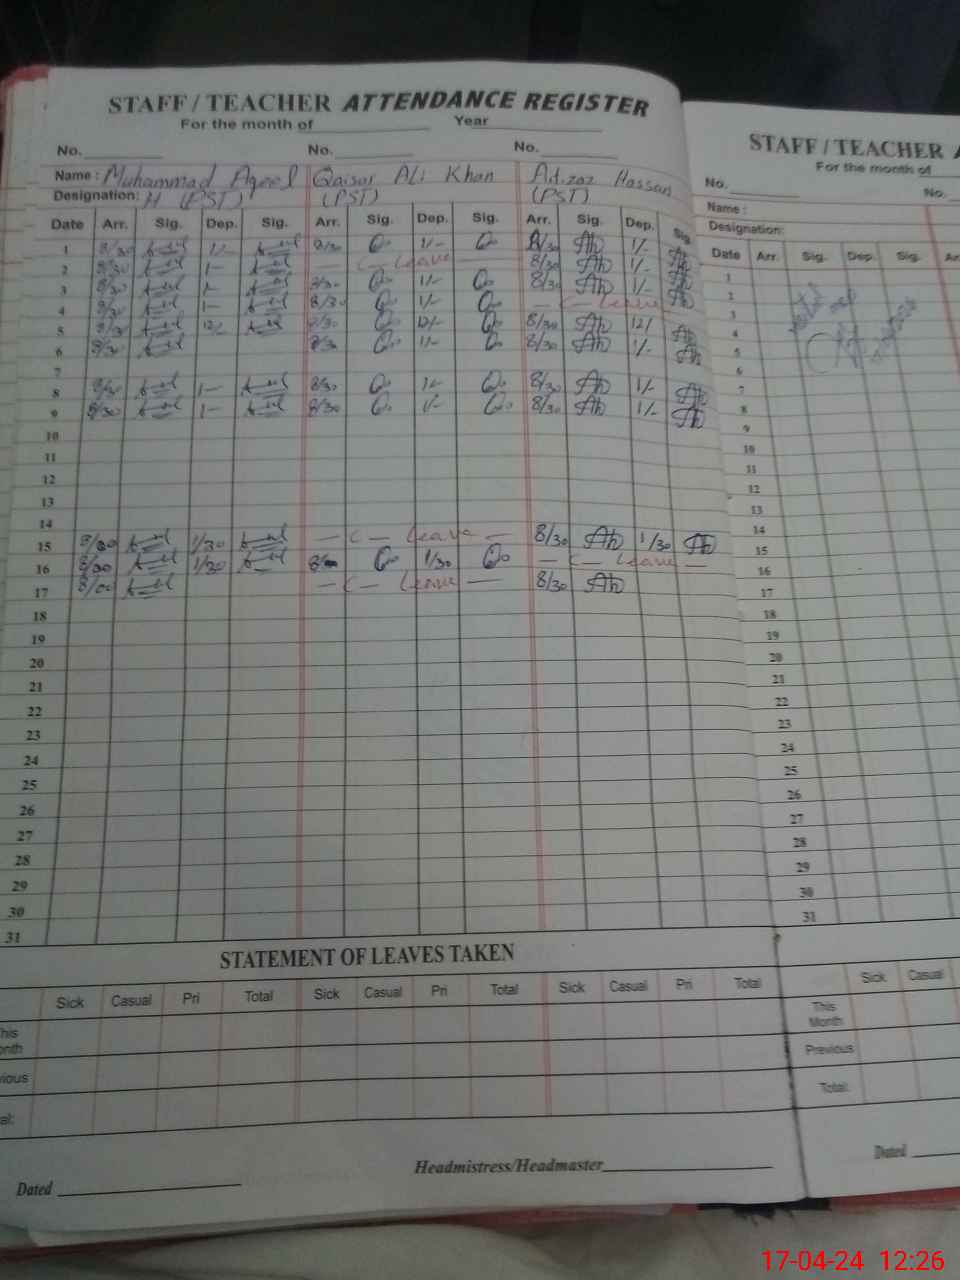 STAFF / TEACHER ATTENDANCE REGISTER
For the month of Year
No. No. No.
Name : Muhammad Aqeel Qaisar Ali Khan Hassan
Designation: H (PST) (PST) (PST)
Date Arr. Sig. Dep. Sig. Arr. Sig. Dep. Sig. Arr. Sig. Dep. Sig.
1 8/30 1/- 8/30 1/- 8/30 1/-
2 8/30 1- C- Leave 8/30 1/-
3 8/30 1- 8/30 1/- 8/30 1/-
4 8/30 1- 8/30 1/- - C- Leave
5 8/30 12/- 8/30 12/- 8/30 12/
6 8/30 8/30 1/- 8/30 1/-
7
8 8/30 1- 8/30 1/- 8/30 1/-
9 8/30 1- 8/30 1/- 8/30 1/-
10
11
12
13
14
15 8/30 1/30 - C- Leave - 8/30 1/30
16 8/30 1/30 1/30 - C- Leave -
17 8/00 - C- Leave - 8/30
18
19
20
21
22
23
24
25
26
27
28
29
30
31
STATEMENT OF LEAVES TAKEN
Sick Casual Pri Total Sick Casual Pri Total Sick Casual Pri Total
Dated Headmistress/Headmaster
STAFF / TEACHER
For the month of
No. No.
Name :
Designation:
Date Arr. Sig. Dep. Sig.
1
2
3
4
5
6
7
8
9
10
11
12
13
14
15
16
17
18
19
20
21
22
23
24
25
26
27
28
29
30
31
Sick Casual
This Month
Previous
Total:
Dated
17-04-24 12:26